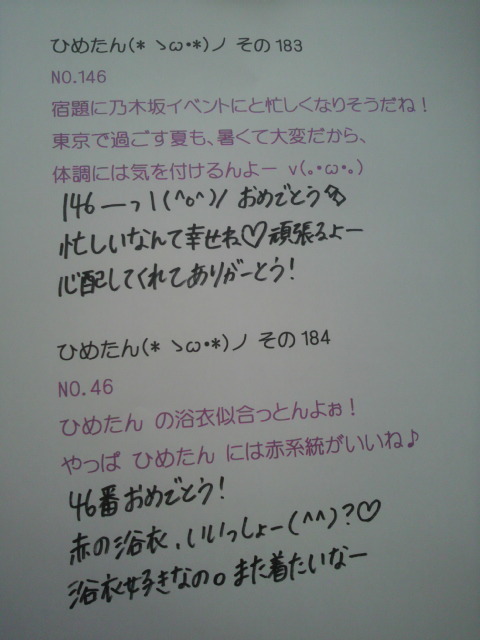 ひめたん(* ゝω•*)ノ その183
NO.146
宿題に乃木坂イベントにと忙しくなりそうだね！
東京で過ごす夏も、暑くて大変だから、
体調には気を付けるんよー v(｡･ω･｡)
146ーっ！(^o^)/ おめでとう
忙しいなんて幸せね♡頑張るよー
心配してくれてありがーとう！
ひめたん(* ゝω•*)ノ その184
NO.46
ひめたん の浴衣似合っとんよぉ！
やっぱ ひめたん には赤系統がいいね♪
46番おめでとう！
赤の浴衣、いいっしょー(^^)？♡
浴衣好きなの。また着たいなー